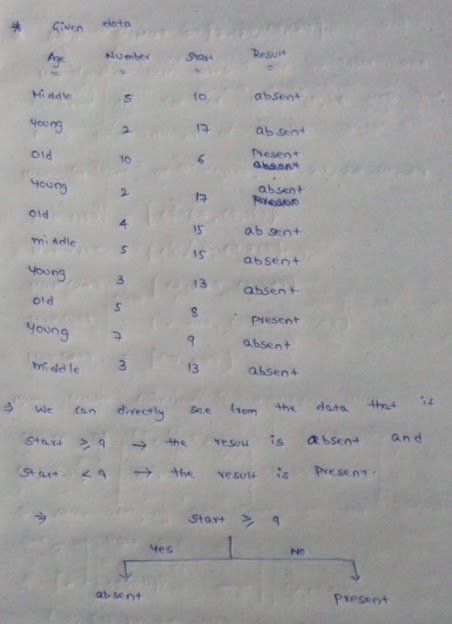 * Given data
Age Number Start Result
Middle 5 10 absent
young 2 17 absent
old 10 6 Present
absent
young 2 17 absent
Present
old 4 15 absent
middle 5 15 absent
young 3 13 absent
old 5 8 present
young 7 9 absent
middle 3 13 absent
⇒ we can directly see from the data that if
Start ≥ 9 → the result is absent and
Start < 9 → the result is Present.
⇒ Start ≥ 9
Yes No
absent present